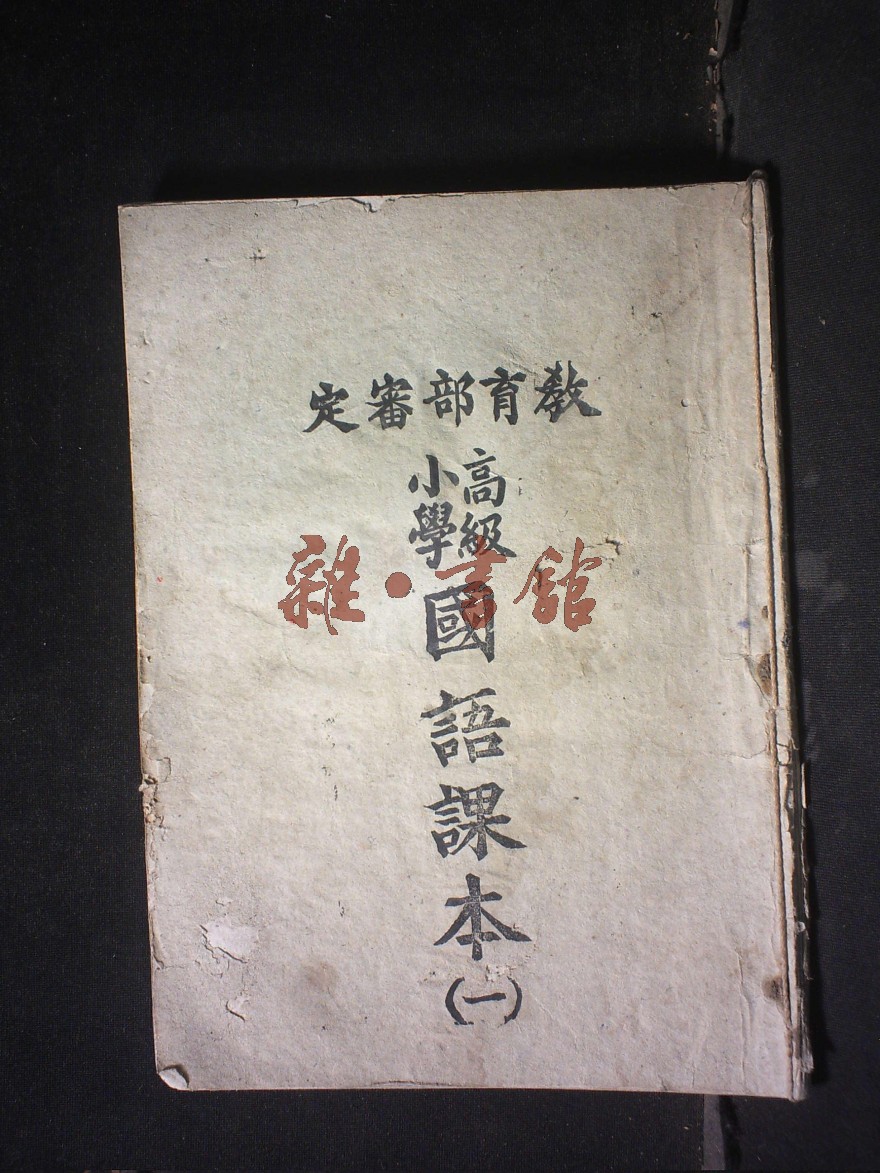 教育部審定
高級
小學
國語課本
(一)
雜·書館